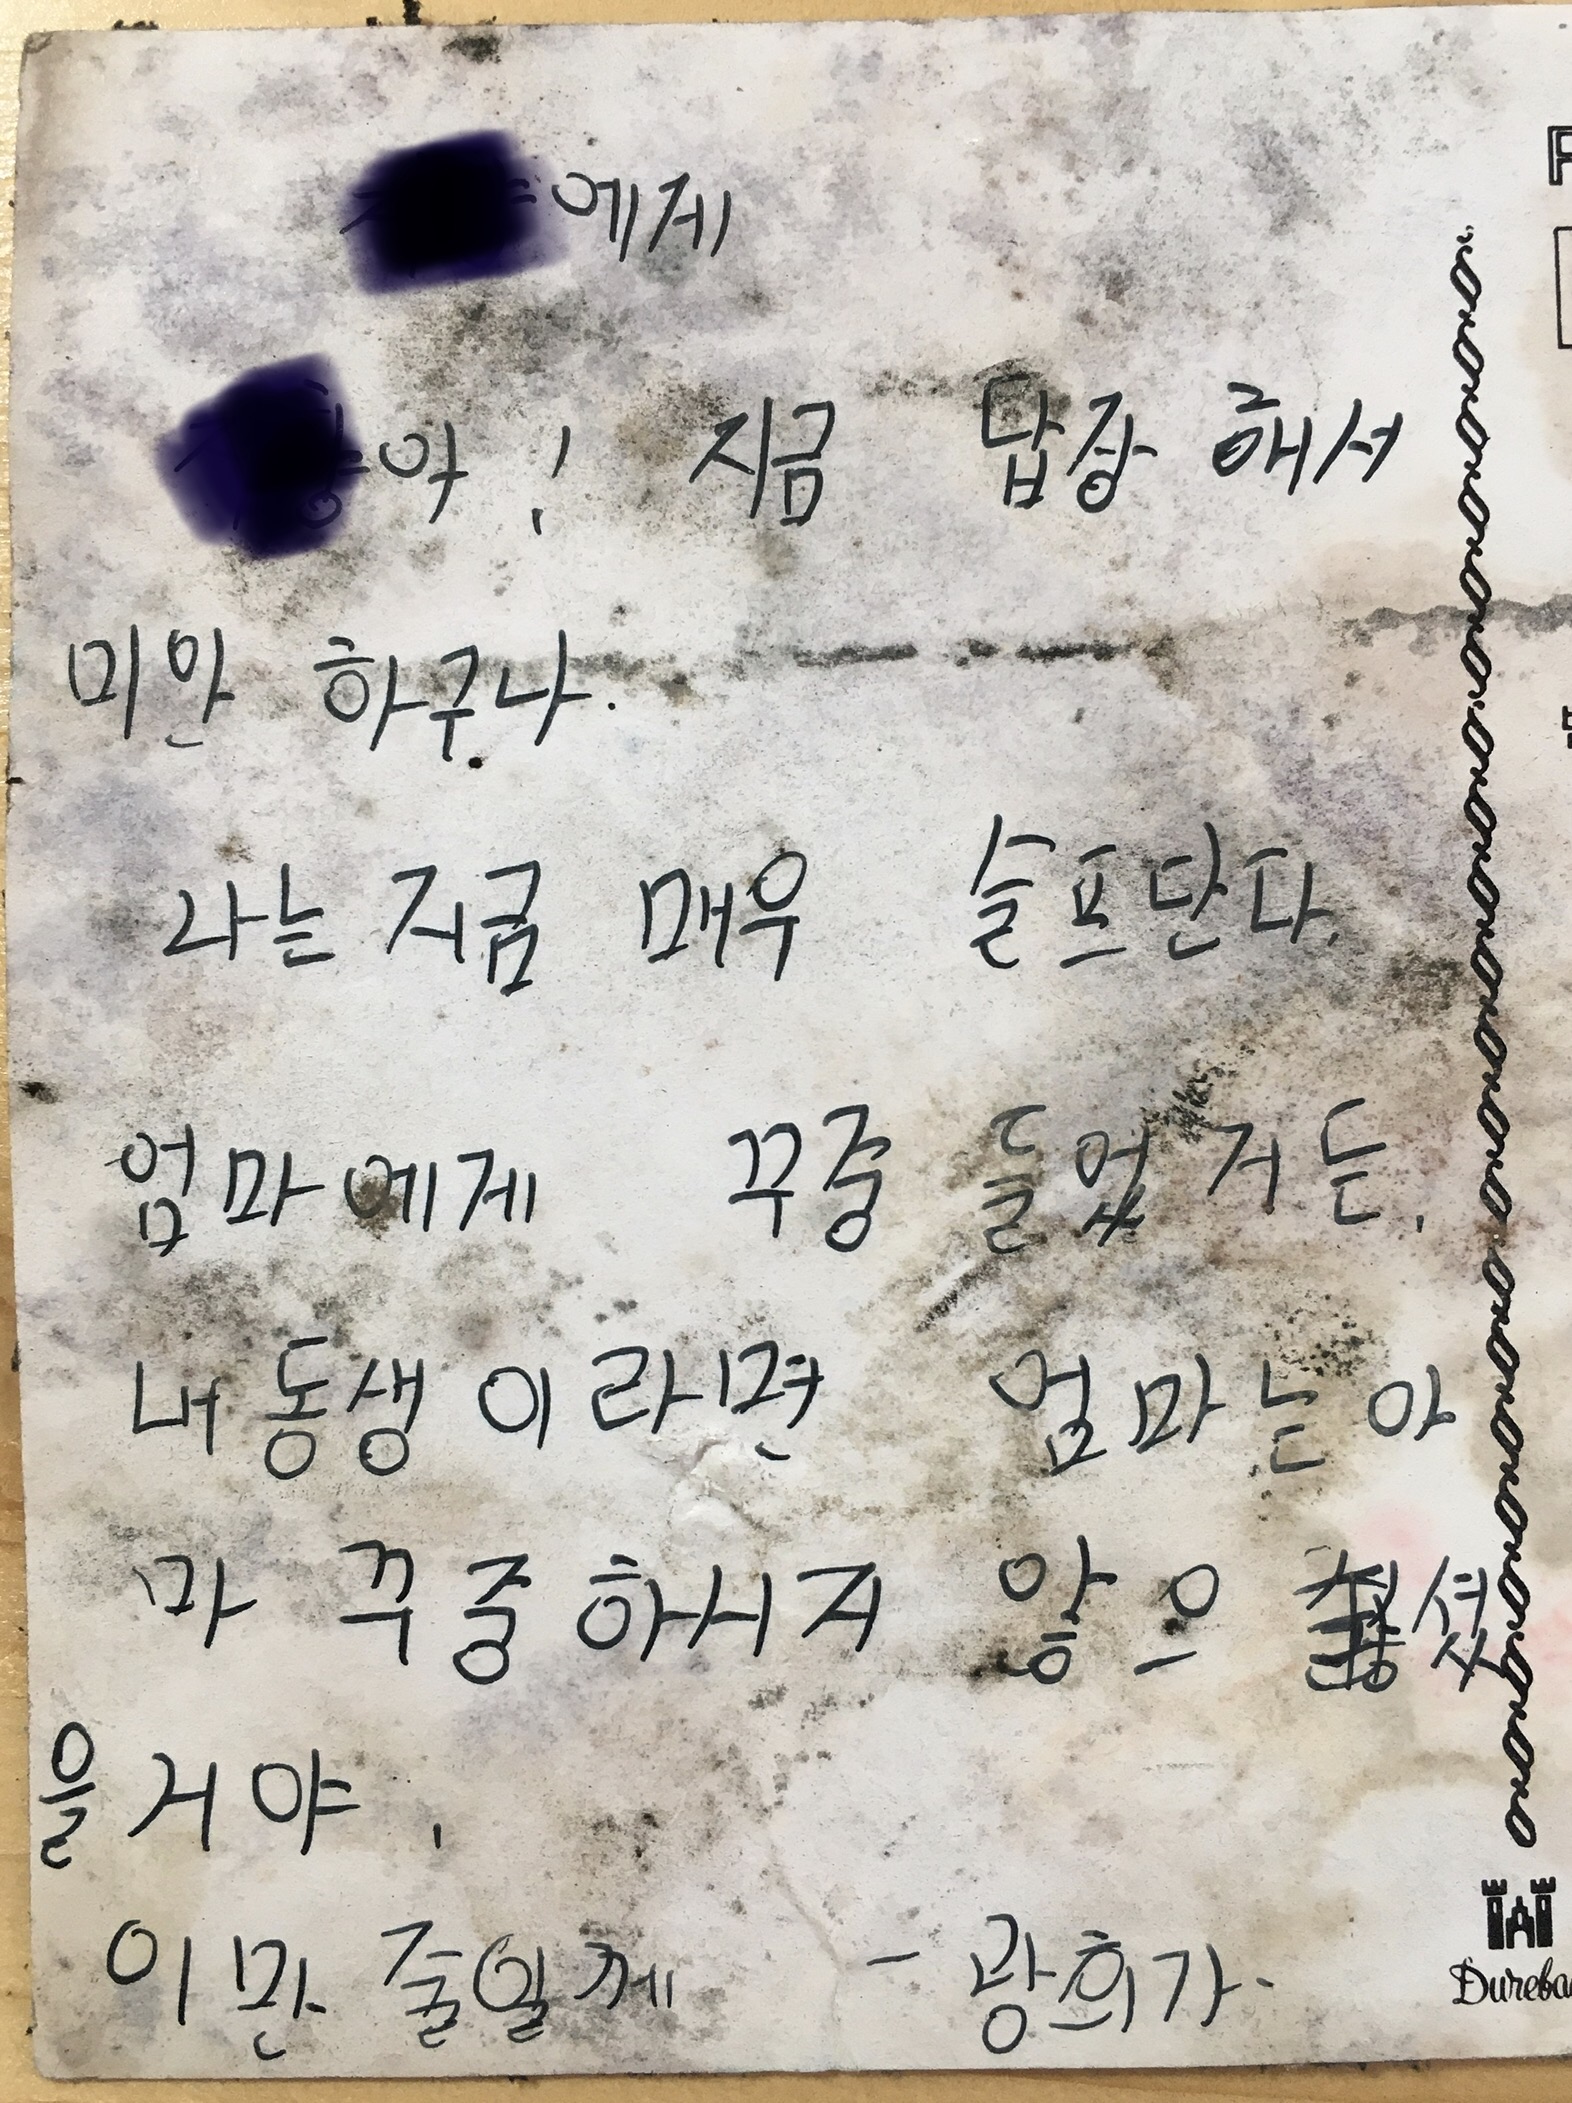 에게
아! 지금 답장 해서
미안 하구나.
나는 지금 매우 슬프단다.
엄마에게 꾸중 들었거든.
내동생이라면 엄마는아
마 꾸중하시지 않으셨
을거야.
이만 줄일께 - 광희가-